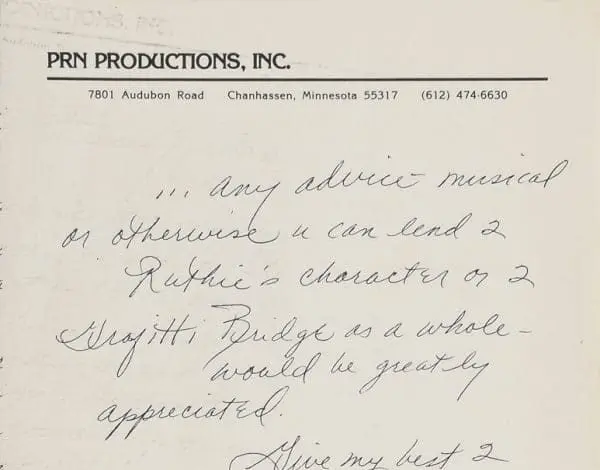 PRN PRODUCTIONS, INC.
7801 Audubon Road Chanhassen, Minnesota 55317 (612) 474-6630
... any advice - musical
or otherwise u can lend 2
Ruthie's character or 2
Grafitti Bridge as a whole -
would be greatly
appreciated.
Give my best 2